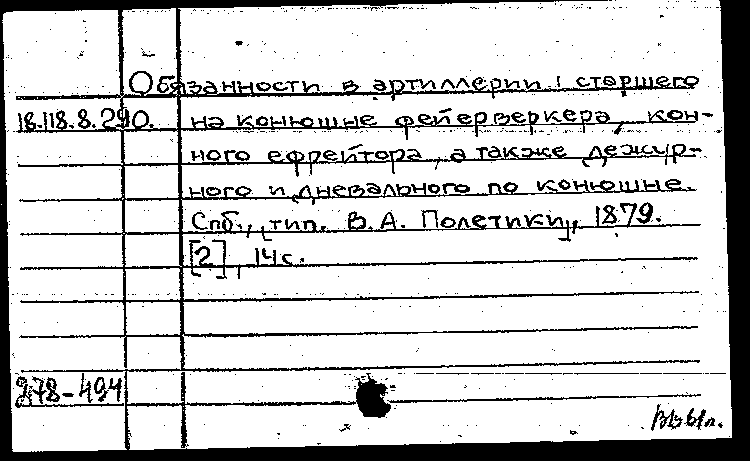 Обязанности в артиллерии: старшего
18.118.8.290. на конюшне фейерверкера, кон-
ного ефрейтора, а также дежур-
ного и дневального по конюшне.
Спб., [тип. В. А. Полетики], 1879.
[2], 14 с.
278-494